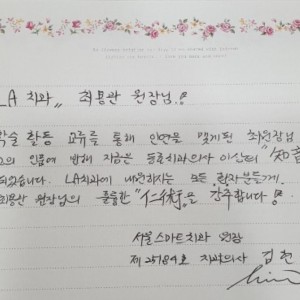 LA 치과 〃 최용관 원장님.!
학술 활동 교류를 통해 인연을 맺게된 최원장님.
인품에 반해 지금은 동료치과의사 이상의 "知音
되었습니다. LA치과에 내원하시는 모든 환자분들께.
최용관 원장님의 훌륭한 "仁術"을 강추합니다!
서울스마트치과 원장
제 25784호 치과의사 김현